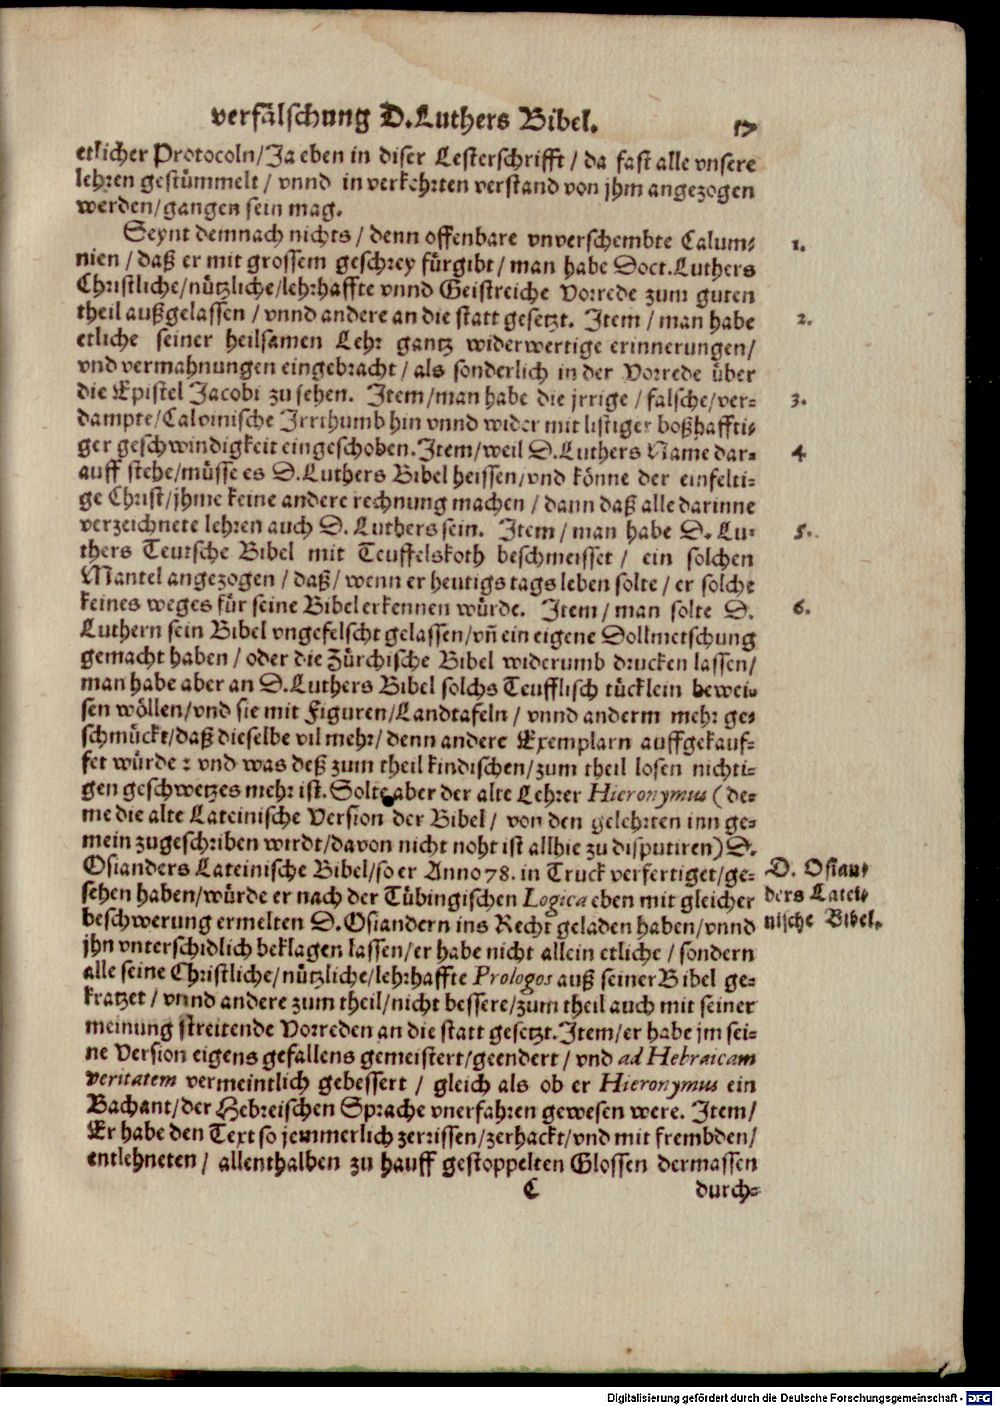 verfälschung D.Luthers Bibel. 17
etlicher Protocoln/Ja eben in diser Lesterschrifft/ da fast alle vnsere
lehren gestümmelt/ vnnd in verkehrten verstand von jhm angezogen
werden/gangen sein mag.
Seynt demnach nichts/ denn offenbare vnverschembte Calum- 1.
nien/ daß er mit grossem geschrey fürgibt/ man habe Doct.Luthers
Christliche/nützliche/lehrhaffte vnnd Geistreiche Vorrede zum guten
theil außgelassen/ vnnd andere an die statt gesetzt. Item/ man habe 2.
etliche seiner heilsamen Lehr gantz widerwertige erinnerungen/
vnd vermahnungen eingebracht/ als sonderlich in der Vorrede über
die Epistel Jacobi zu sehen. Item/man habe die jrrige/ falsche/ver- 3.
dampte/Calvinische Irrthumb hin vnnd wider mit listiger boßhaffti-
ger geschwindigkeit eingeschoben. Item/weil D.Luthers Name dar- 4
auff stehe/müsse es D.Luthers Bibel heissen/vnd könne der einfelti-
ge Christ/jhme keine andere rechnung machen/ dann daß alle darinne
verzeichnete lehren auch D. Luthers sein. Item/ man habe D. Lu- 5.
thers Teutsche Bibel mit Teuffelskoth beschmeisset/ ein solchen
Mantel angezogen/ daß/ wenn er heutigs tags leben solte/ er solche
keines weges für seine Bibel erkennen würde. Item/ man solte D. 6.
Luthern sein Bibel vngefelscht gelassen/vñ ein eigene Dollmetschung
gemacht haben/ oder die Zürchische Bibel widerumb drucken lassen/
man habe aber an D.Luthers Bibel solchs Teufflisch tücklein bewei-
sen wöllen/vnd sie mit Figuren/Landtafeln/ vnnd anderm mehr ge-
schmückt/daß dieselbe vil mehr/ denn andere Exemplarn auffgekauf-
fet würde: vnd was deß zum theil kindischen/zum theil losen nichti-
gen geschwetzes mehr ist. Solte aber der alte Lehrer Hieronymus (de-
me die alte Lateinische Version der Bibel/ von den gelehrten inn ge-
mein zugeschriben wirdt/davon nicht noht ist allhie zu disputiren) D.
Osianders Lateinische Bibel/so er Anno 78. in Truck verfertiget/ge- D. Osian-
sehen haben/würde er nach der Tübingischen Logica eben mit gleicher ders Latei-
beschwerung ermelten D.Osiandern ins Recht geladen haben/vnnd nische Bibel.
jhn vnterschidlich beklagen lassen/er habe nicht allein etliche/ sondern
alle seine Christliche/nützliche/lehrhaffte Prologos auß seiner Bibel ge-
kratzet/ vnnd andere zum theil/nicht bessere/zum theil auch mit seiner
meinung streitende Vorreden an die statt gesetzt. Item/er habe jm sei-
ne Version eigens gefallens gemeistert/geendert/ vnd ad Hebraicam
veritatem vermeintlich gebessert/ gleich als ob er Hieronymus ein
Bachant/der Hebreischen Sprache vnerfahren gewesen were. Item/
Er habe den Text so jemmerlich zerrissen/zerhackt/vnd mit frembden/
entlehneten/ allenthalben zu hauff gestoppelten Glossen dermassen
C durch-
Digitalisierung gefördert durch die Deutsche Forschungsgemeinschaft - DFG